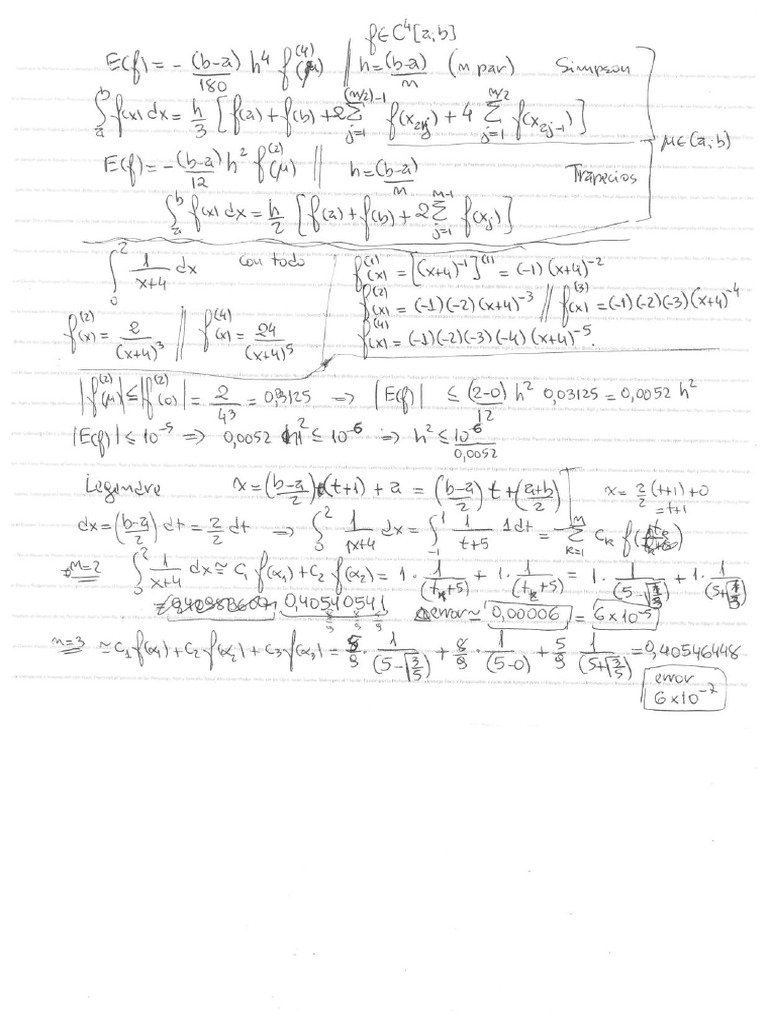 f∈C⁴[a;b]
E(f) = -(b-a)/180 h⁴ f⁽⁴⁾(μ) // h=(b-a)/m (m par) Simpson
∫ₐᵇ f(x) dx = h/3 [f(a)+f(b)+2 Σ_{j=1}^{(m/2)-1} f(x_{2j}) + 4 Σ_{j=1}^{m/2} f(x_{2j-1})]
μ∈(a;b)
E(f) = -(b-a)/12 h² f⁽²⁾(μ) // h=(b-a)/m Trapecios
∫ₐᵇ f(x) dx = h/2 [f(a)+f(b)+2 Σ_{j=1}^{m-1} f(xj)]
∫₀² 1/(x+4) dx con todo
f⁽²⁾(x) = 2/(x+4)³ // f⁽⁴⁾(x) = 24/(x+4)⁵
f⁽¹⁾(x) = [(x+4)⁻¹]⁽¹⁾ = (-1)(x+4)⁻²
f⁽²⁾(x) = (-1)(-2)(x+4)⁻³ // f⁽³⁾(x) = (-1)(-2)(-3)(x+4)⁻⁴
f⁽⁴⁾(x) = (-1)(-2)(-3)(-4)(x+4)⁻⁵.
|f⁽²⁾(μ)| ≤ |f⁽²⁾(0)| = 2/4³ = 0,03125 ⇒ |E(f)| ≤ (2-0)/12 h² 0,03125 = 0,0052 h²
|E(f)| ≤ 10⁻⁵ ⇒ 0,0052 h² ≤ 10⁻⁶ ⇒ h² ≤ 10⁻⁶/0,0052
Legendre x = (b-a)/2 (t+1) + a = (b-a)/2 t + (a+b)/2 x = 2/2 (t+1)+0 = t+1
dx = (b-a)/2 dt = 2/2 dt ⇒ ∫₀² 1/(x+4) dx = ∫₋₁¹ 1/(t+5) 1dt = Σ_{k=1}^{m} c_k f()
m=2 ∫₀² 1/(x+4) dx ≃ c₁ f(α₁) + c₂ f(α₂) = 1 · 1/(t_k+5) + 1 · 1/(t_k+5) = 1 · 1/(5-√(1/3)) + 1 · 1/(5+√(1/3))
0,40540541 error ≃ 0,00006 = 6×10⁻⁵
m=3 ≃ c₁f(α₁)+c₂f(α₂)+c₃f(α₃) = 5/9 · 1/(5-√(3/5)) + 8/9 · 1/(5-0) + 5/9 1/(5+√(3/5)) = 0,40546448
error
6×10⁻⁷